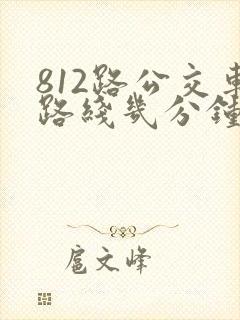 812路公交車
路綫幾分鐘
扈文峰